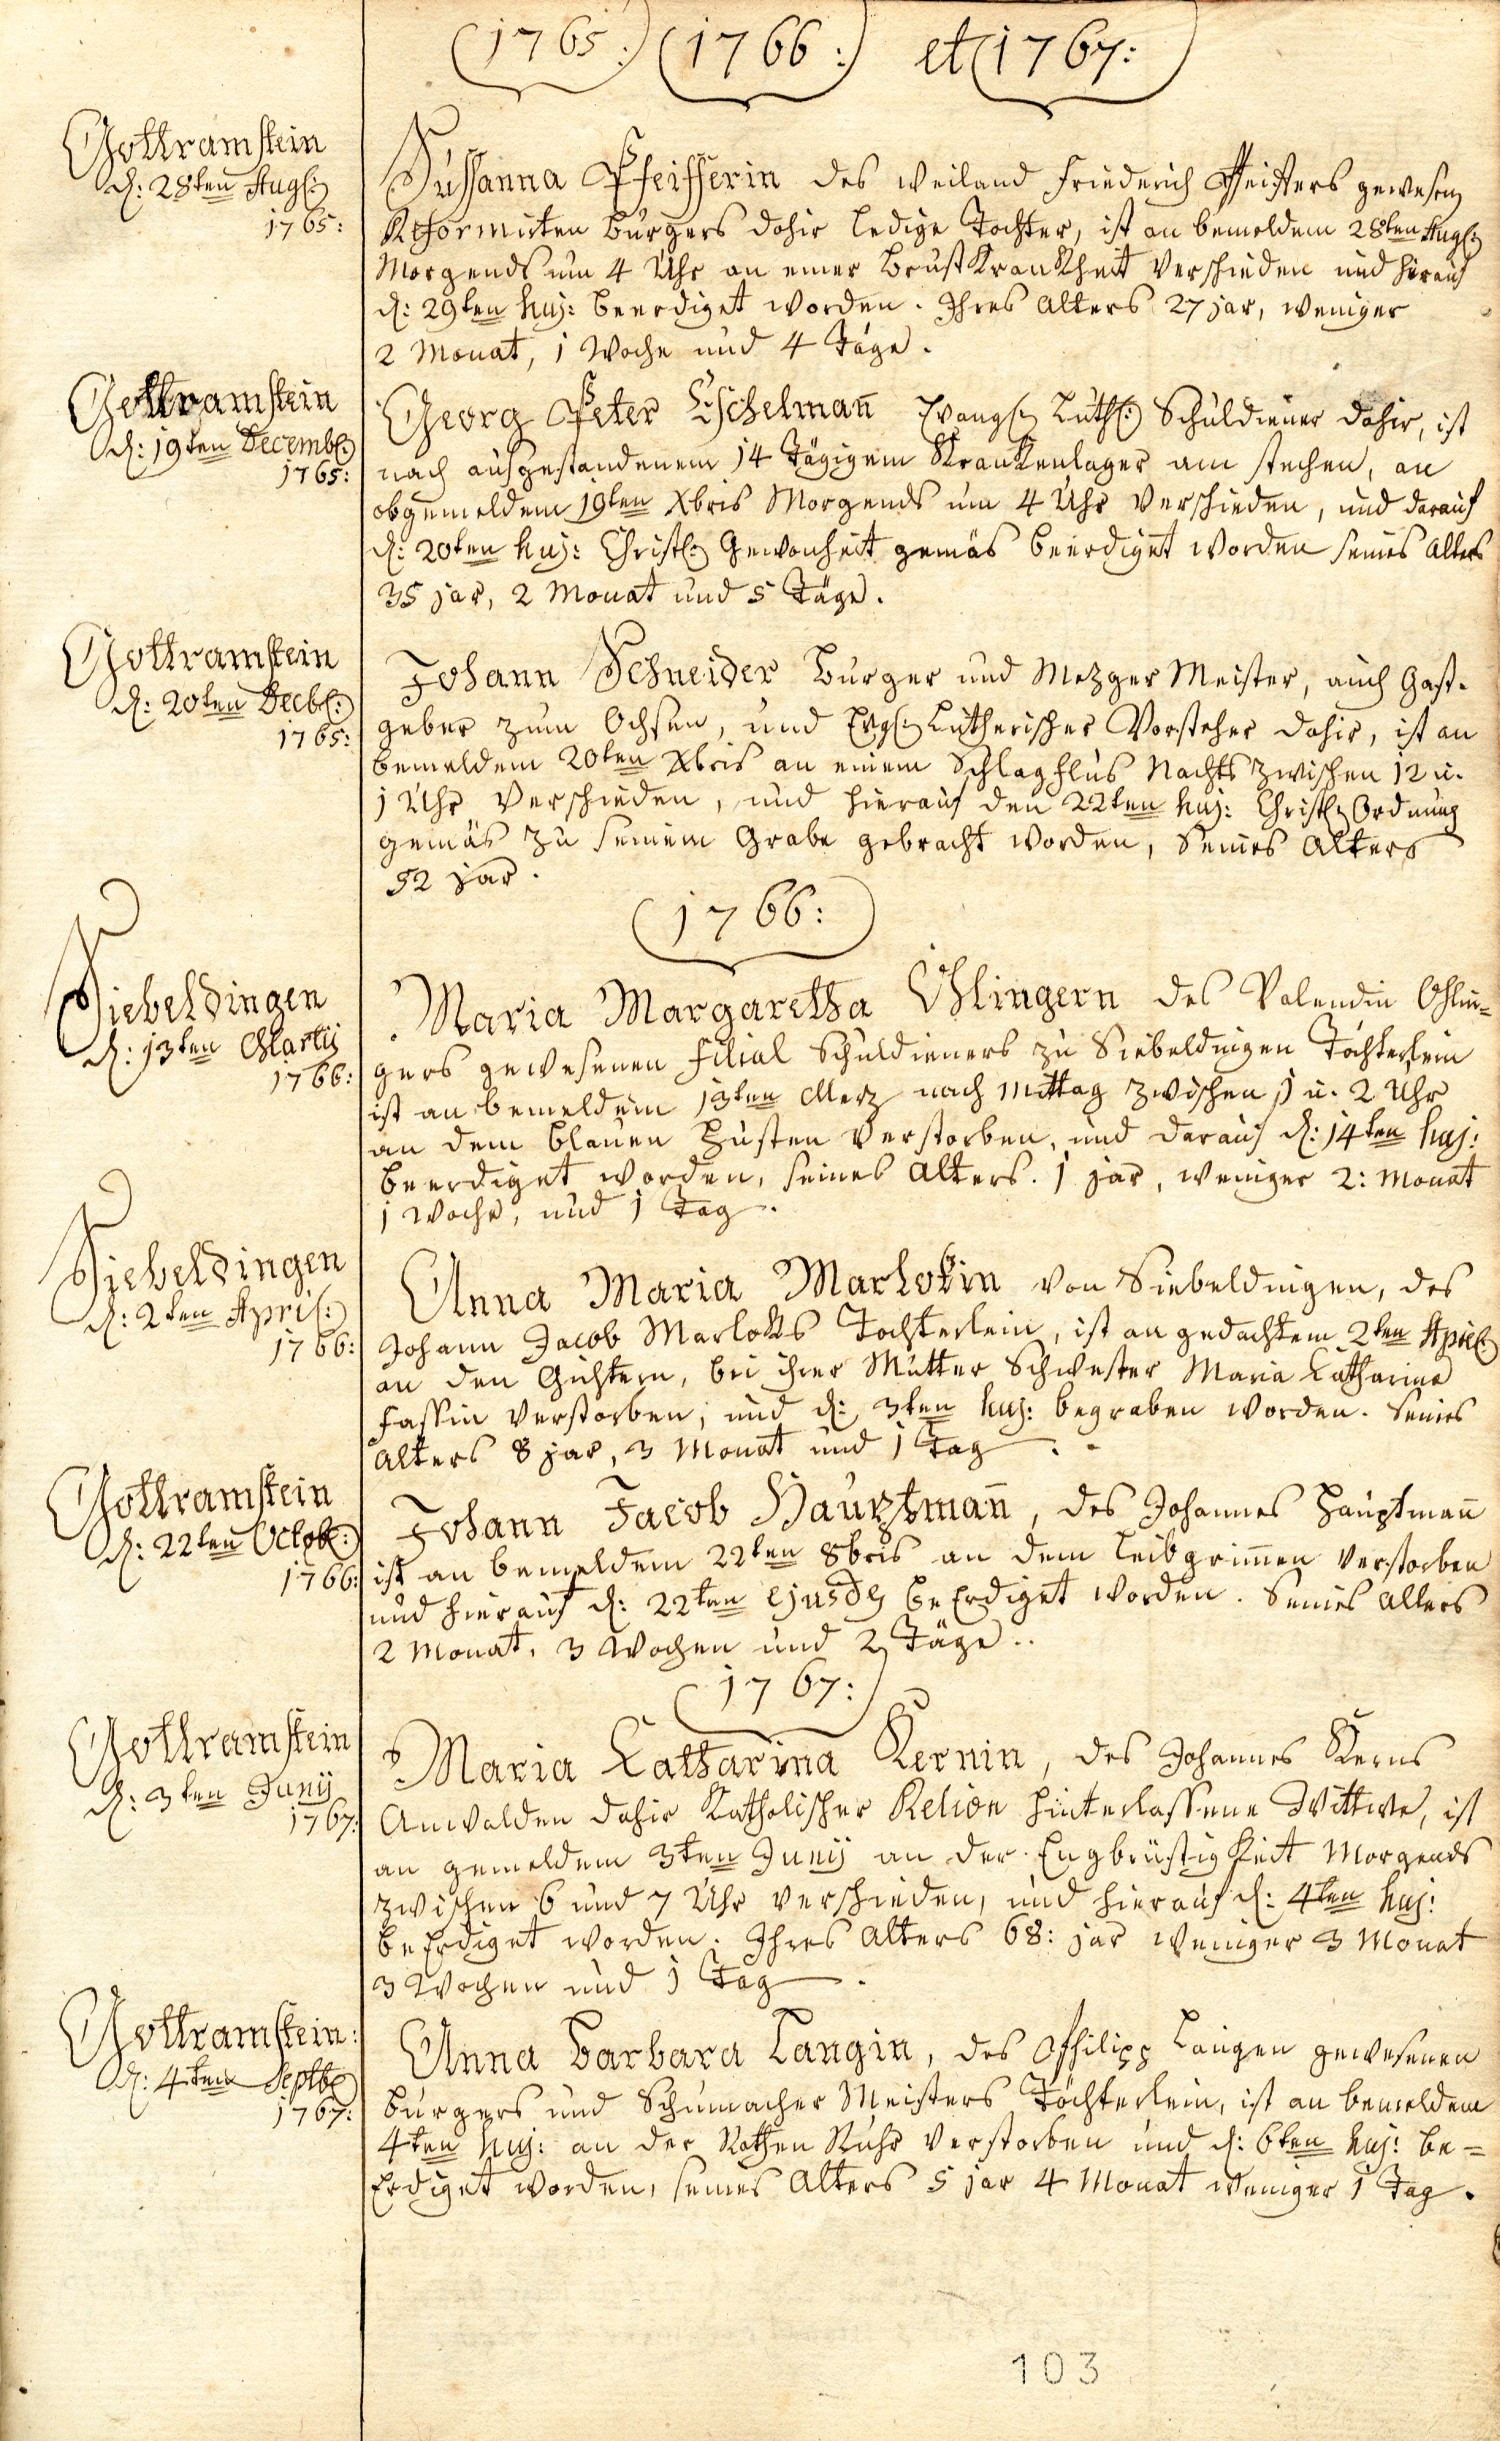 1765: 1766: et 1767:
Gottramstein
d: 28ten Augs:
1765:
Sußanna Pfeifferin des weiland Friederich Pfeiffers gewesen
Reformirten Burgers dahir ledige Tochter, ist an bemeldem 28ten Augs:
Morgends um 4 Uhr an einer BrustKrankheit verschieden und hierauf
d: 29ten huj: beerdiget worden. Ihres Alters 27 jar, weniger
2 Monat, 1 Woche und 4 Täge.
Gottramstein
d: 19ten Decemb:
1765:
Georg Peter Eschelman̄ Evangl: Luth: Schuldiener dahir, ist
nach ausgestandenem 14 Tägigem Krankenlager am stechen, an
obgemeldem 19ten Xbris Morgends um 4 Uhr verschieden, und darauf
d: 20ten huj: Christl: Gewonheit gemäs beerdiget worden seines Alters
35 jar, 2 Monat und 5 Täge.
Gottramstein
d: 20ten Decb:
1765:
Johann Schneider Burger und Mezger Meister, auch Gast-
geber zum Ochsen, und Evgl: Lutherischer Vorsteher dahir, ist an
bemeldem 20ten Xbris an einem Schlagflus Nachts zwischen 12 u.
1 Uhr verschieden, und hierauf den 22ten huj: Christl: Ordnung
gemäs zu seinem Grabe gebracht worden, Seines Alters
52 jar.
1766:
Siebeldingen
d: 13ten Martij
1766:
Maria Margaretha Öhlingern des Valendin Öhlin-
gers gewesenen Filial Schuldieners zu Siebeldingen Töchterlein
ist an bemeldem 13ten Merz nach Mittag zwischen 1 u. 2 Uhr
an dem blauen Husten verstorben, und darauf d: 14ten huj:
beerdiget worden, seines Alters. 1 jar, weniger 2: Monat
1 Woche, und 1 Tag.
Siebeldingen
d: 2ten April:
1766:
Anna Maria Marlokin von Siebeldingen, des
Johann Jacob Marloks Tochterlein, ist an gedachtem 2ten April
an den Gichtern, bei ihrer Mutter Schwester Maria Catharina
Fassin verstorben, und d: 3ten huj: begraben worden. Seines
Alters 8 jar, 3 Monat und 1 Tag.
Gottramstein
d: 22ten Octob:
1766:
Johann Jacob Hauptman̄, des Johannes Hauptman̄
ist an bemeldem 22ten 8bris an dem Leibgrim̄en verstorben
und hierauf d: 22ten ejusd beErdiget worden. Seines Alters
2 Monat, 3 Wochen und 2 Täge..
1767:
Gottramstein
d: 3ten Junij
1767:
Maria Catharina Kernin, des Johannes Kerns
Anwalden dahir Katholischer Relion hinterlassene Wittwe, ist
an gemeldem 3ten Junij an der Engbrüstigkeit Morgends
zwischen 6 und 7 Uhr verschieden, und hierauf d: 4ten huj:
beErdiget worden. Ihres Alters 68: jar weniger 3 Monat
3 Wochen und 1 Tag.
Gottramstein:
d: 4ten Septb
1767:
Anna Barbara Langin, des Philipp Langen gewesenen
burgers und Schumacher Meisters Töchterlein, ist an bemeldem
4ten huj: an der Rothen Ruhr verstorben und d: 6ten huj: be=
Erdiget worden, seines Alters 5 jar 4 Monat weniger 1 Tag.
103